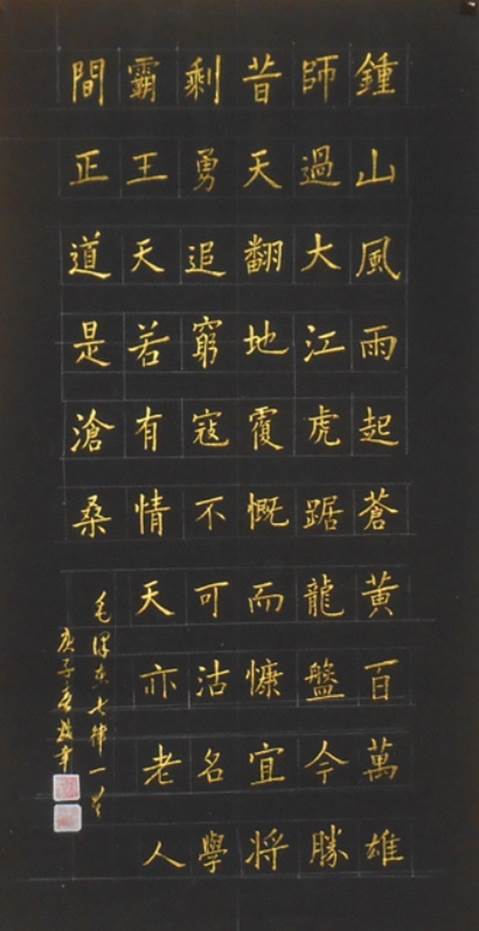 鍾山風雨起蒼黃百萬雄
師過大江虎踞龍盤今勝
昔天翻地覆慨而慷宜將
剩勇追窮寇不可沽名學
霸王天若有情天亦老人
間正道是滄桑
毛泽东七律一首
庚子